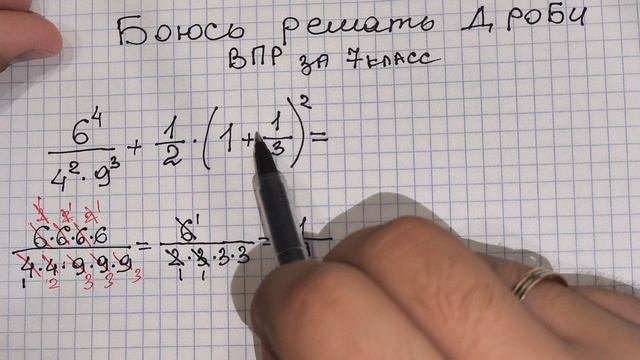 Боюсь решать Дроби
ВПР за 7 класс
6⁴/(4²·9³) + 1/2 · (1 + 1/3)² =
6·6·6·6/(4·4·9·9·9) = 6/(2·3·3·3) = 1